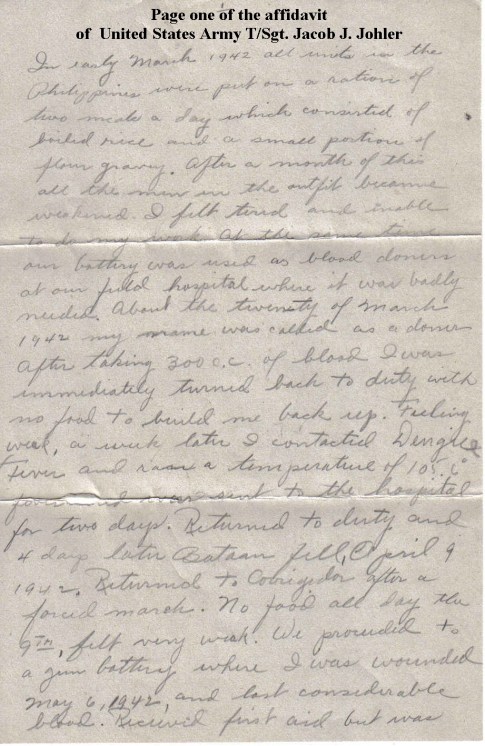 Page one of the affidavit
of United States Army T/Sgt. Jacob J. Johler
In early March 1942 all units in the
Philippines were put on a ration of
two meals a day which consisted of
boiled rice and a small portion of
flour gravy. After a month of this
all the men in the outfit became
weakened. I felt tired and unable
to do my work. At the same time
our battery was used as blood doners
at our field hospital where it was badly
needed. About the twenty of March
1942 my name was called as a doner
After taking 300 c.c. of blood I was
immediately turned back to duty with
no food to build me back up. Feeling
weak, a week later I contacted Dengue
Fever and ran a temperature of
and was sent to the hospital
for two days. Returned to duty and
4 days later Bataan fell, April 9
1942. Returned to Corregidor after a
forced march. No food all day the
9th, felt very weak. We proceeded to
a gun battery where I was wounded
May 6, 1942, and lost considerable
blood. Received first aid but was